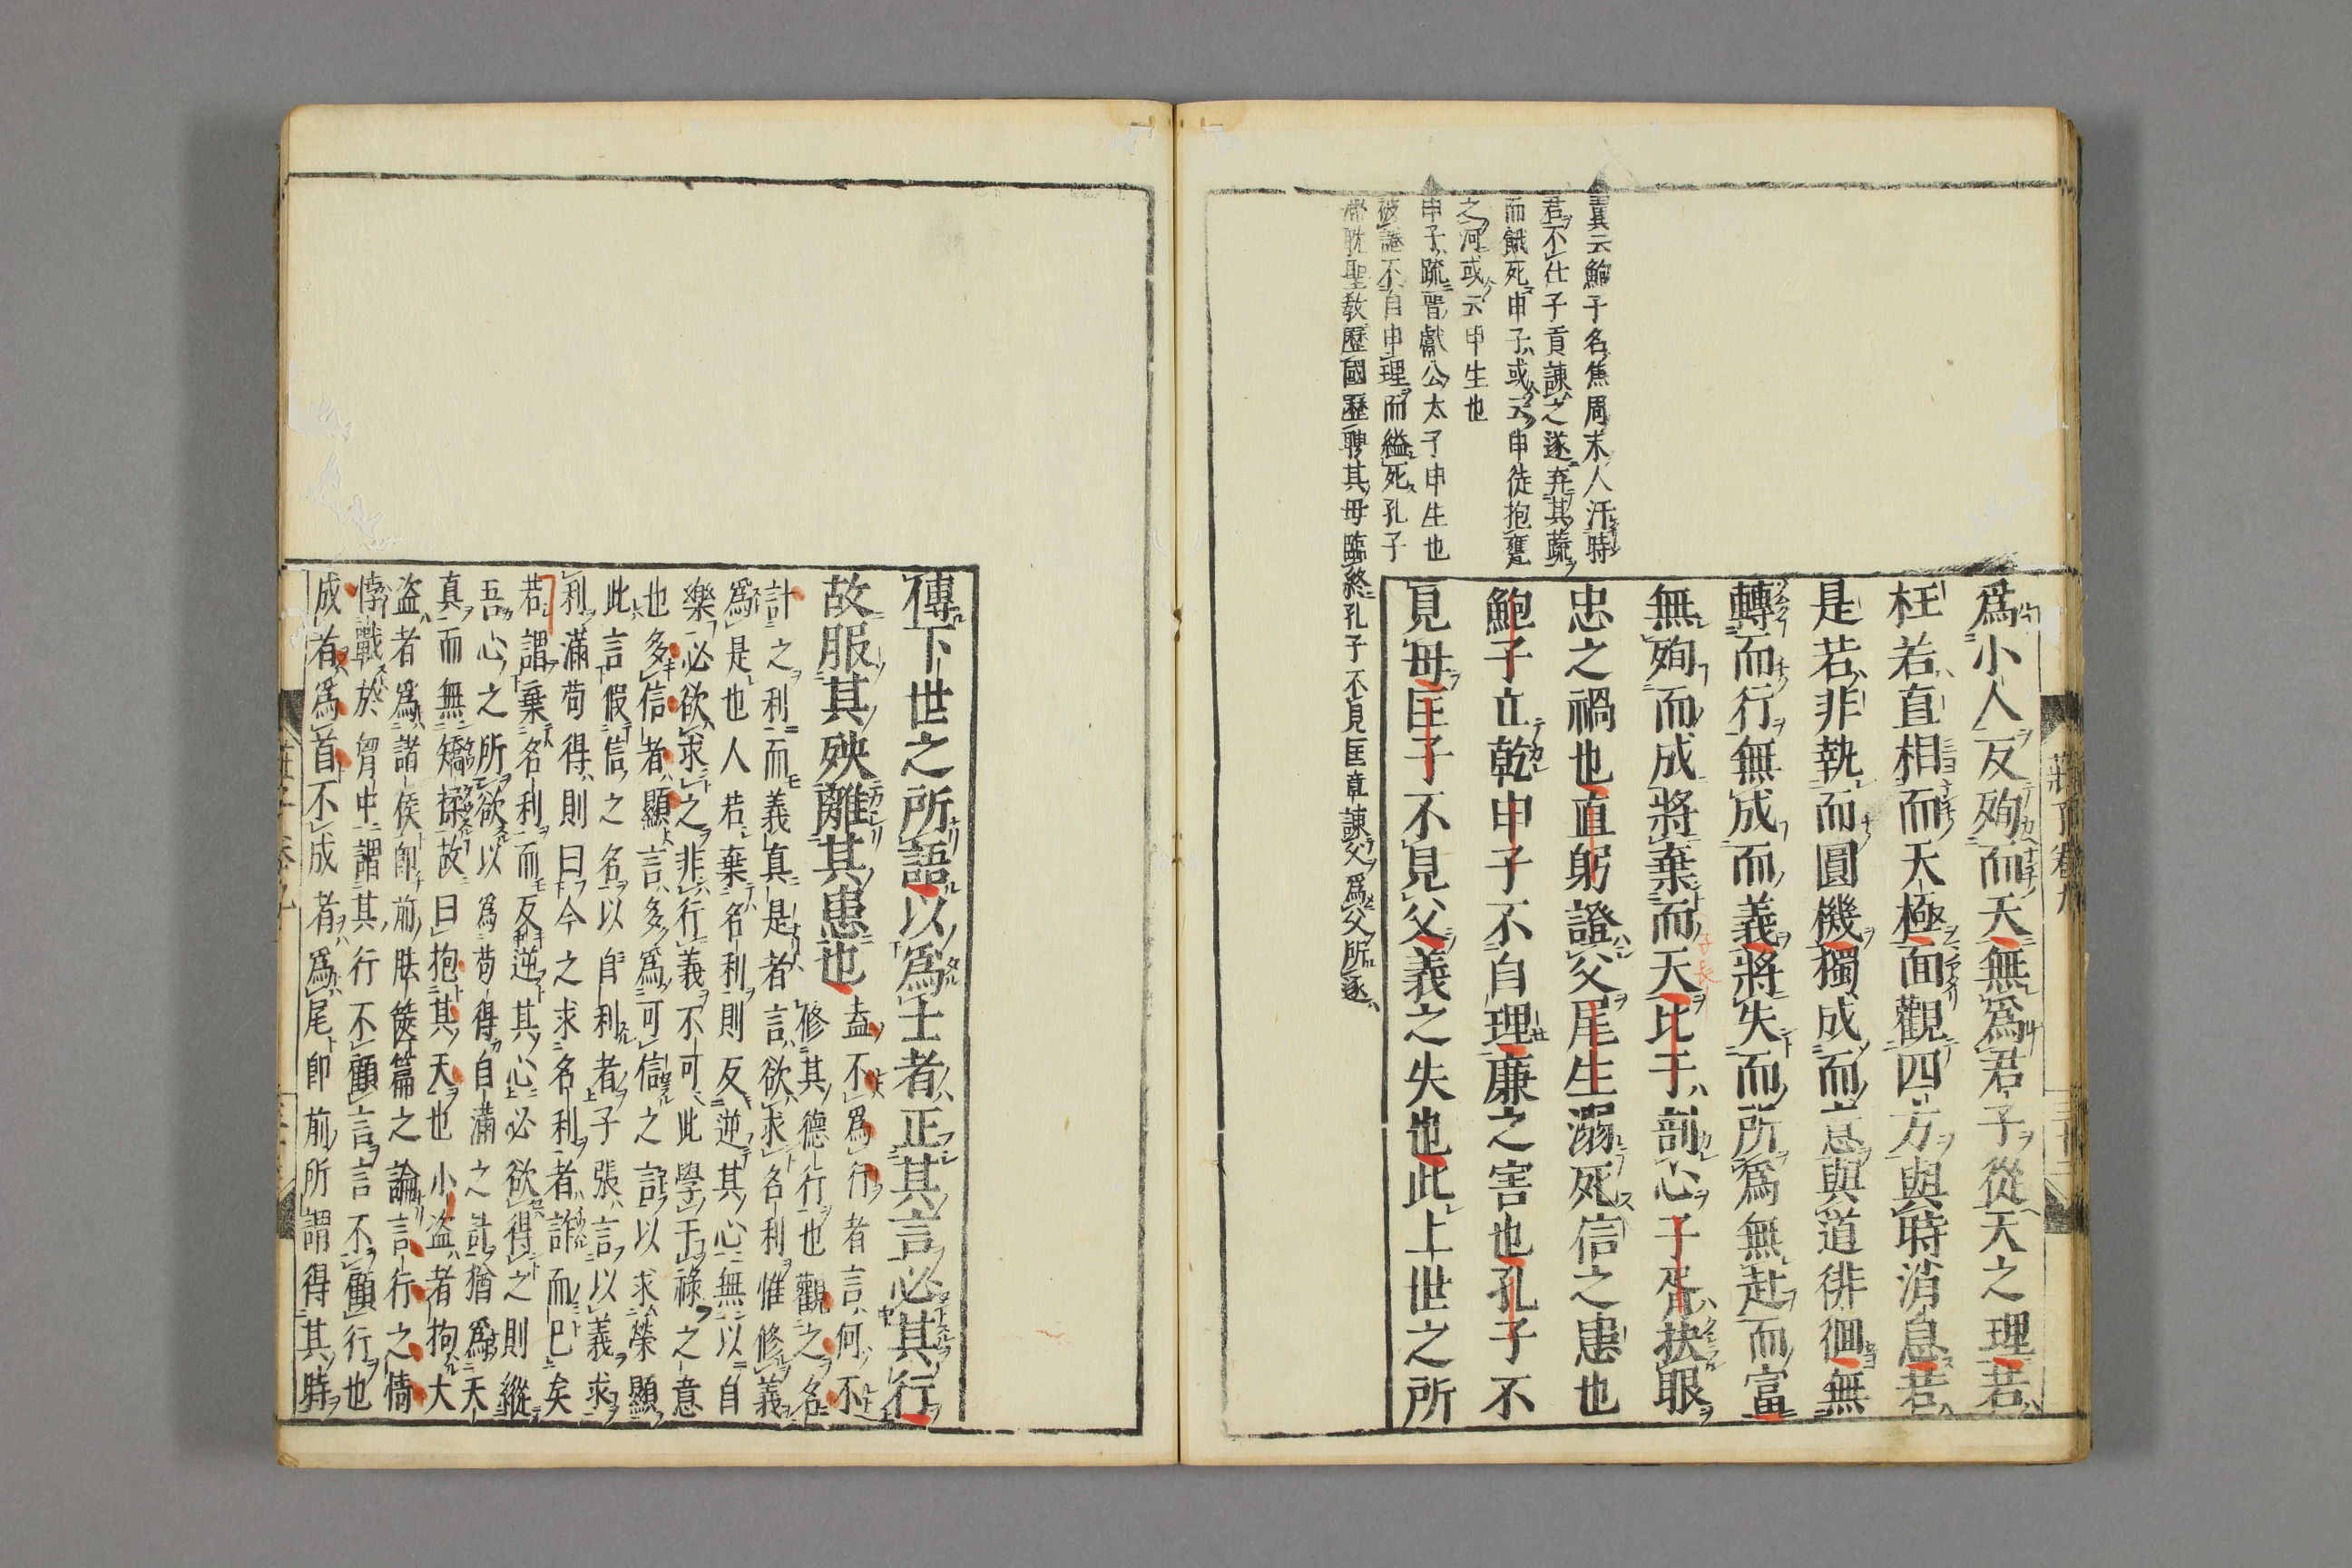 翼云鮑子名焦周末人汙時
君不仕子貢諫之遂弃其蔬
而餓死申子或云申徒抱甕
之河或云申生也
申子疏晉獻公太子申生也
被譖不自申理而縊死孔子
聖教歷國歷聘其母臨終孔子不見匡章諫父爲父所逐
爲小人反殉而天無爲君子從天之理若
枉若直相而天極面觀四方與時消息若
是若非執而圓機獨成而意與道徘徊無
轉而行無成而義將失而所爲無赴而富
無殉而成將棄而天比干剖心子胥抉眼
忠之禍也直躬證父尾生溺死信之患也
鮑子立乾申子不自理廉之害也孔子不
見母匡子不見父義之失也此上世之所
傳下世之所語以爲士者正其言必其行
故服其殃離其患也 盍不爲行者言何不
修其德行也觀之名
計之利而義真是者言欲求名利惟修義
爲是也人若棄名利則反逆其心無以自
樂必欲求之非行義不可此學于祿之意
也多信者顯言多爲可信之言以求榮顯
此言假信之名以自利者子張言以義求
利滿苟得則曰今之求名利者誰而已矣
若謂棄名利而反逆其心必欲得之則縱
吾心之所欲以爲苟得自滿之計猶爲天
真而無矯揉故曰抱其天也小盗者拘大
盗者爲諸侯即前胠篋篇之論言行之情
悖戰於胷中謂其行不顧言言不顧行也
成者爲首不成者爲尾即前所謂得其時